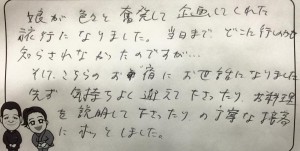 娘が色々と奮発して企画してくれた
旅行になりました。当日まで どこに行くのかも
知らされなかったのですが…
そして、こちらのお宿にお世話になりました
先ず 気持ちよく迎えて下さったり お料理
を説明して下さったりの丁寧な接客
にホッとしました。